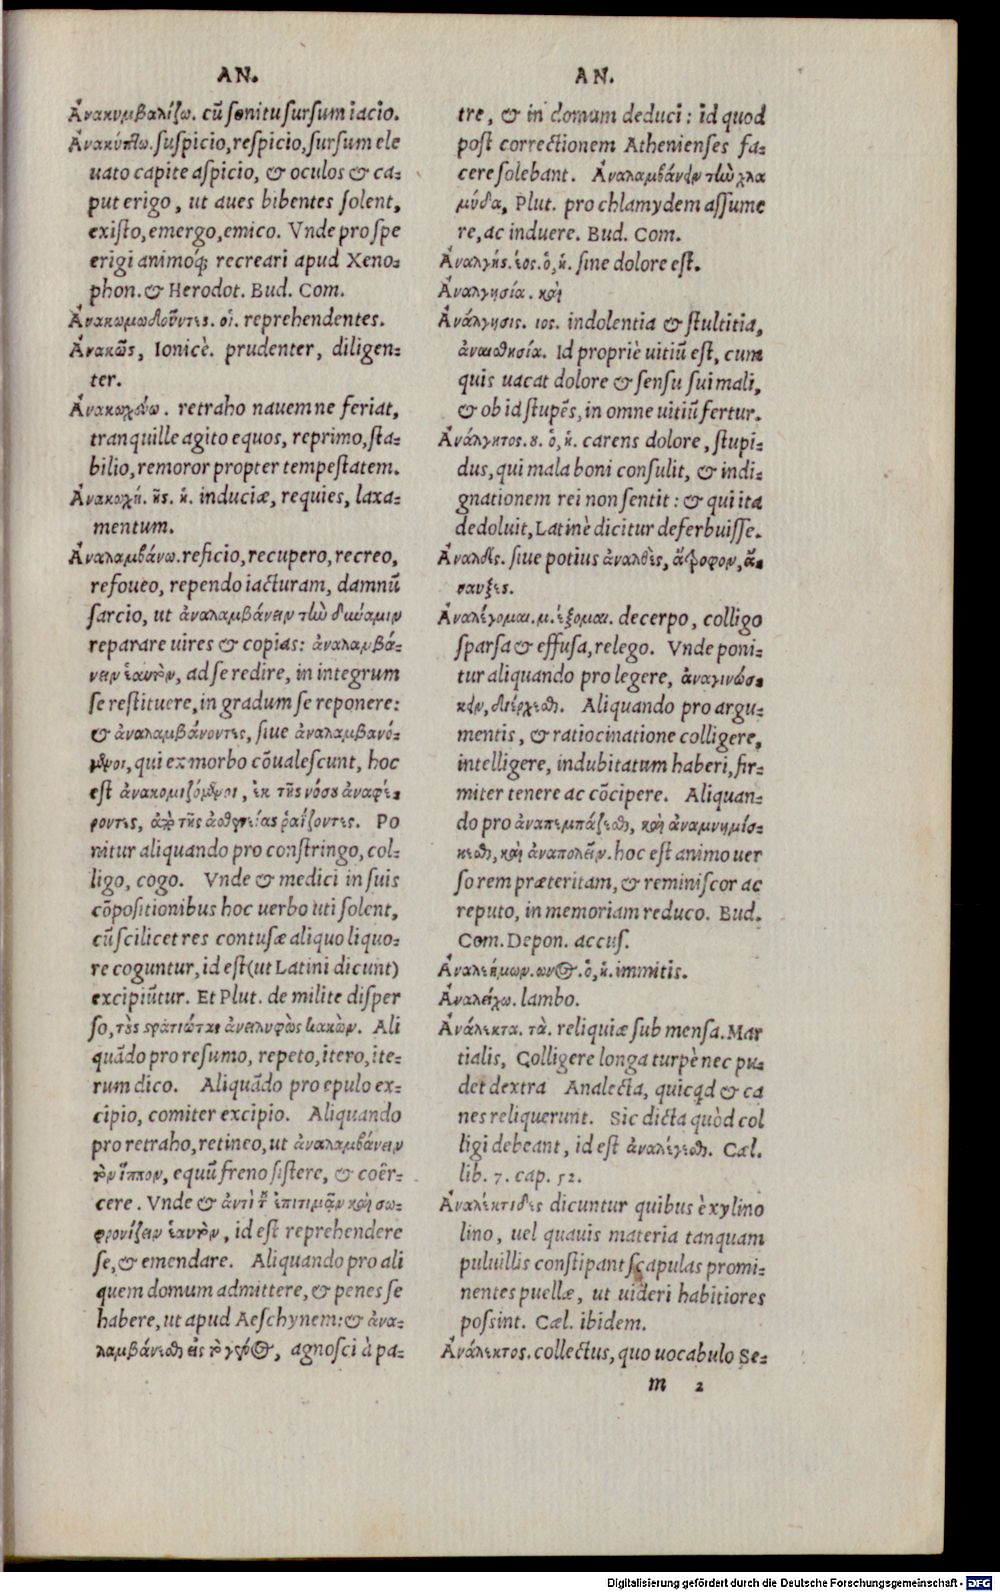 AN.
Ἀνακυμβαλίζω. cū sonitu sursum iacio.
Ἀνακύπτω. suspicio, respicio, sursum ele
uato capite aspicio, & oculos & ca-
put erigo, ut aues bibentes solent,
existo, emergo, emico. Vnde pro spe
erigi animoq́; recreari apud Xeno-
phon. & Herodot. Bud. Com.
Ἀνακωμωδοῦντες. οἱ. reprehendentes.
Ἀνακῶς, Ionicè. prudenter, diligen-
ter.
Ἀνακωχεύω. retraho nauem ne feriat,
tranquille agito equos, reprimo, sta-
bilio, remoror propter tempestatem.
Ἀνακωχή. ῆς. ἡ. induciæ, requies, laxa-
mentum.
Ἀναλαμβάνω. reficio, recupero, recreo,
refoueo, rependo iacturam, damnū
sarcio, ut ἀναλαμβάνειν τὴν δύναμιν
reparare uires & copias: ἀναλαμβά-
νειν ἑαυτὸν, ad se redire, in integrum
se restituere, in gradum se reponere:
& ἀναλαμβάνοντες, siue ἀναλαμβανό-
μενοι, qui ex morbo cōualescunt, hoc
est ἀνακομιζόμενοι, ἐκ τῆς νόσου ἀναφέ-
ροντες, ἀπὸ τῆς ἀσθενείας ῥαΐζοντες. Po
nitur aliquando pro constringo, col-
ligo, cogo. Vnde & medici in suis
cōpositionibus hoc uerbo uti solent,
cū scilicet res contusæ aliquo liquo-
re coguntur, id est (ut Latini dicunt)
excipiūtur. Et Plut. de milite disper
so, τοὺς στρατιώτας ἀνειληφὼς κακῶν. Ali
quādo pro resumo, repeto, itero, ite-
rum dico. Aliquādo pro epulo ex-
cipio, comiter excipio. Aliquando
pro retraho, retineo, ut ἀναλαμβάνειν
τὸν ἵππον, equū freno sistere, & coër-
cere. Vnde & ἀντὶ τοῦ ἐπιτιμᾶν καὶ σω-
φρονίζειν ἑαυτὸν, id est reprehendere
se, & emendare. Aliquando pro ali
quem domum admittere, & penes se
habere, ut apud Aeschynem: & ἀνα-
λαμβάνεσθαι εἰς τὸ γένος, agnosci à pa-
AN.
tre, & in domum deduci: id quod
post correctionem Athenienses fa-
cere solebant. Ἀναλαμβάνειν τὴν χλα
μύδα, Plut. pro chlamydem assume
re, ac induere. Bud. Com.
Ἀναλγής. έος. ὁ, ἡ. sine dolore est.
Ἀναλγησία. καὶ
Ἀνάλγησις. ιος. indolentia & stultitia,
ἀναισθησία. Id propriè uitiū est, cum
quis uacat dolore & sensu sui mali,
& ob id stupēs, in omne uitiū fertur.
Ἀνάλγητος. ου. ὁ, ἡ. carens dolore, stupi-
dus, qui mala boni consulit, & indi-
gnationem rei non sentit: & qui ita
dedoluit, Latinè dicitur deferbuisse.
Ἀναλδές. siue potius ἀναλθὲς, ἄτροφον, ἄ-
σαυξες.
Ἀναλέγομαι. μ. έξομαι. decerpo, colligo
sparsa & effusa, relego. Vnde poni-
tur aliquando pro legere, ἀναγινώσ-
κειν, διέρχεσθαι. Aliquando pro argu-
mentis, & ratiocinatione colligere,
intelligere, indubitatum haberi, fir-
miter tenere ac cōcipere. Aliquan-
do pro ἀναπεμπάζεσθαι, καὶ ἀναμνημίσ-
κεσθαι, καὶ ἀναπολεῖν. hoc est animo uer
so rem præteritam, & reminiscor ac
reputo, in memoriam reduco. Bud.
Com. Depon. accus.
Ἀναλεήμων. ωνος. ὁ, ἡ. immitis.
Ἀναλείχω. lambo.
Ἀνάλεκτα. τὰ. reliquiæ sub mensa. Mar
tialis, Colligere longa turpè nec pu-
det dextra Analecta, quicqd & ca
nes reliquerunt. Sic dicta quòd col
ligi debeant, id est ἀναλέγεσθαι. Cæl.
lib. 7. cap. 52.
Ἀναλέκτιδες dicuntur quibus è xylino
lino, uel quauis materia tanquam
puluillis constipant scapulas promi-
nentes puellæ, ut uideri habitiores
possint. Cæl. ibidem.
Ἀνάλεκτος. collectus, quo uocabulo Se-
m 2
Digitalisierung gefördert durch die Deutsche Forschungsgemeinschaft - DFG